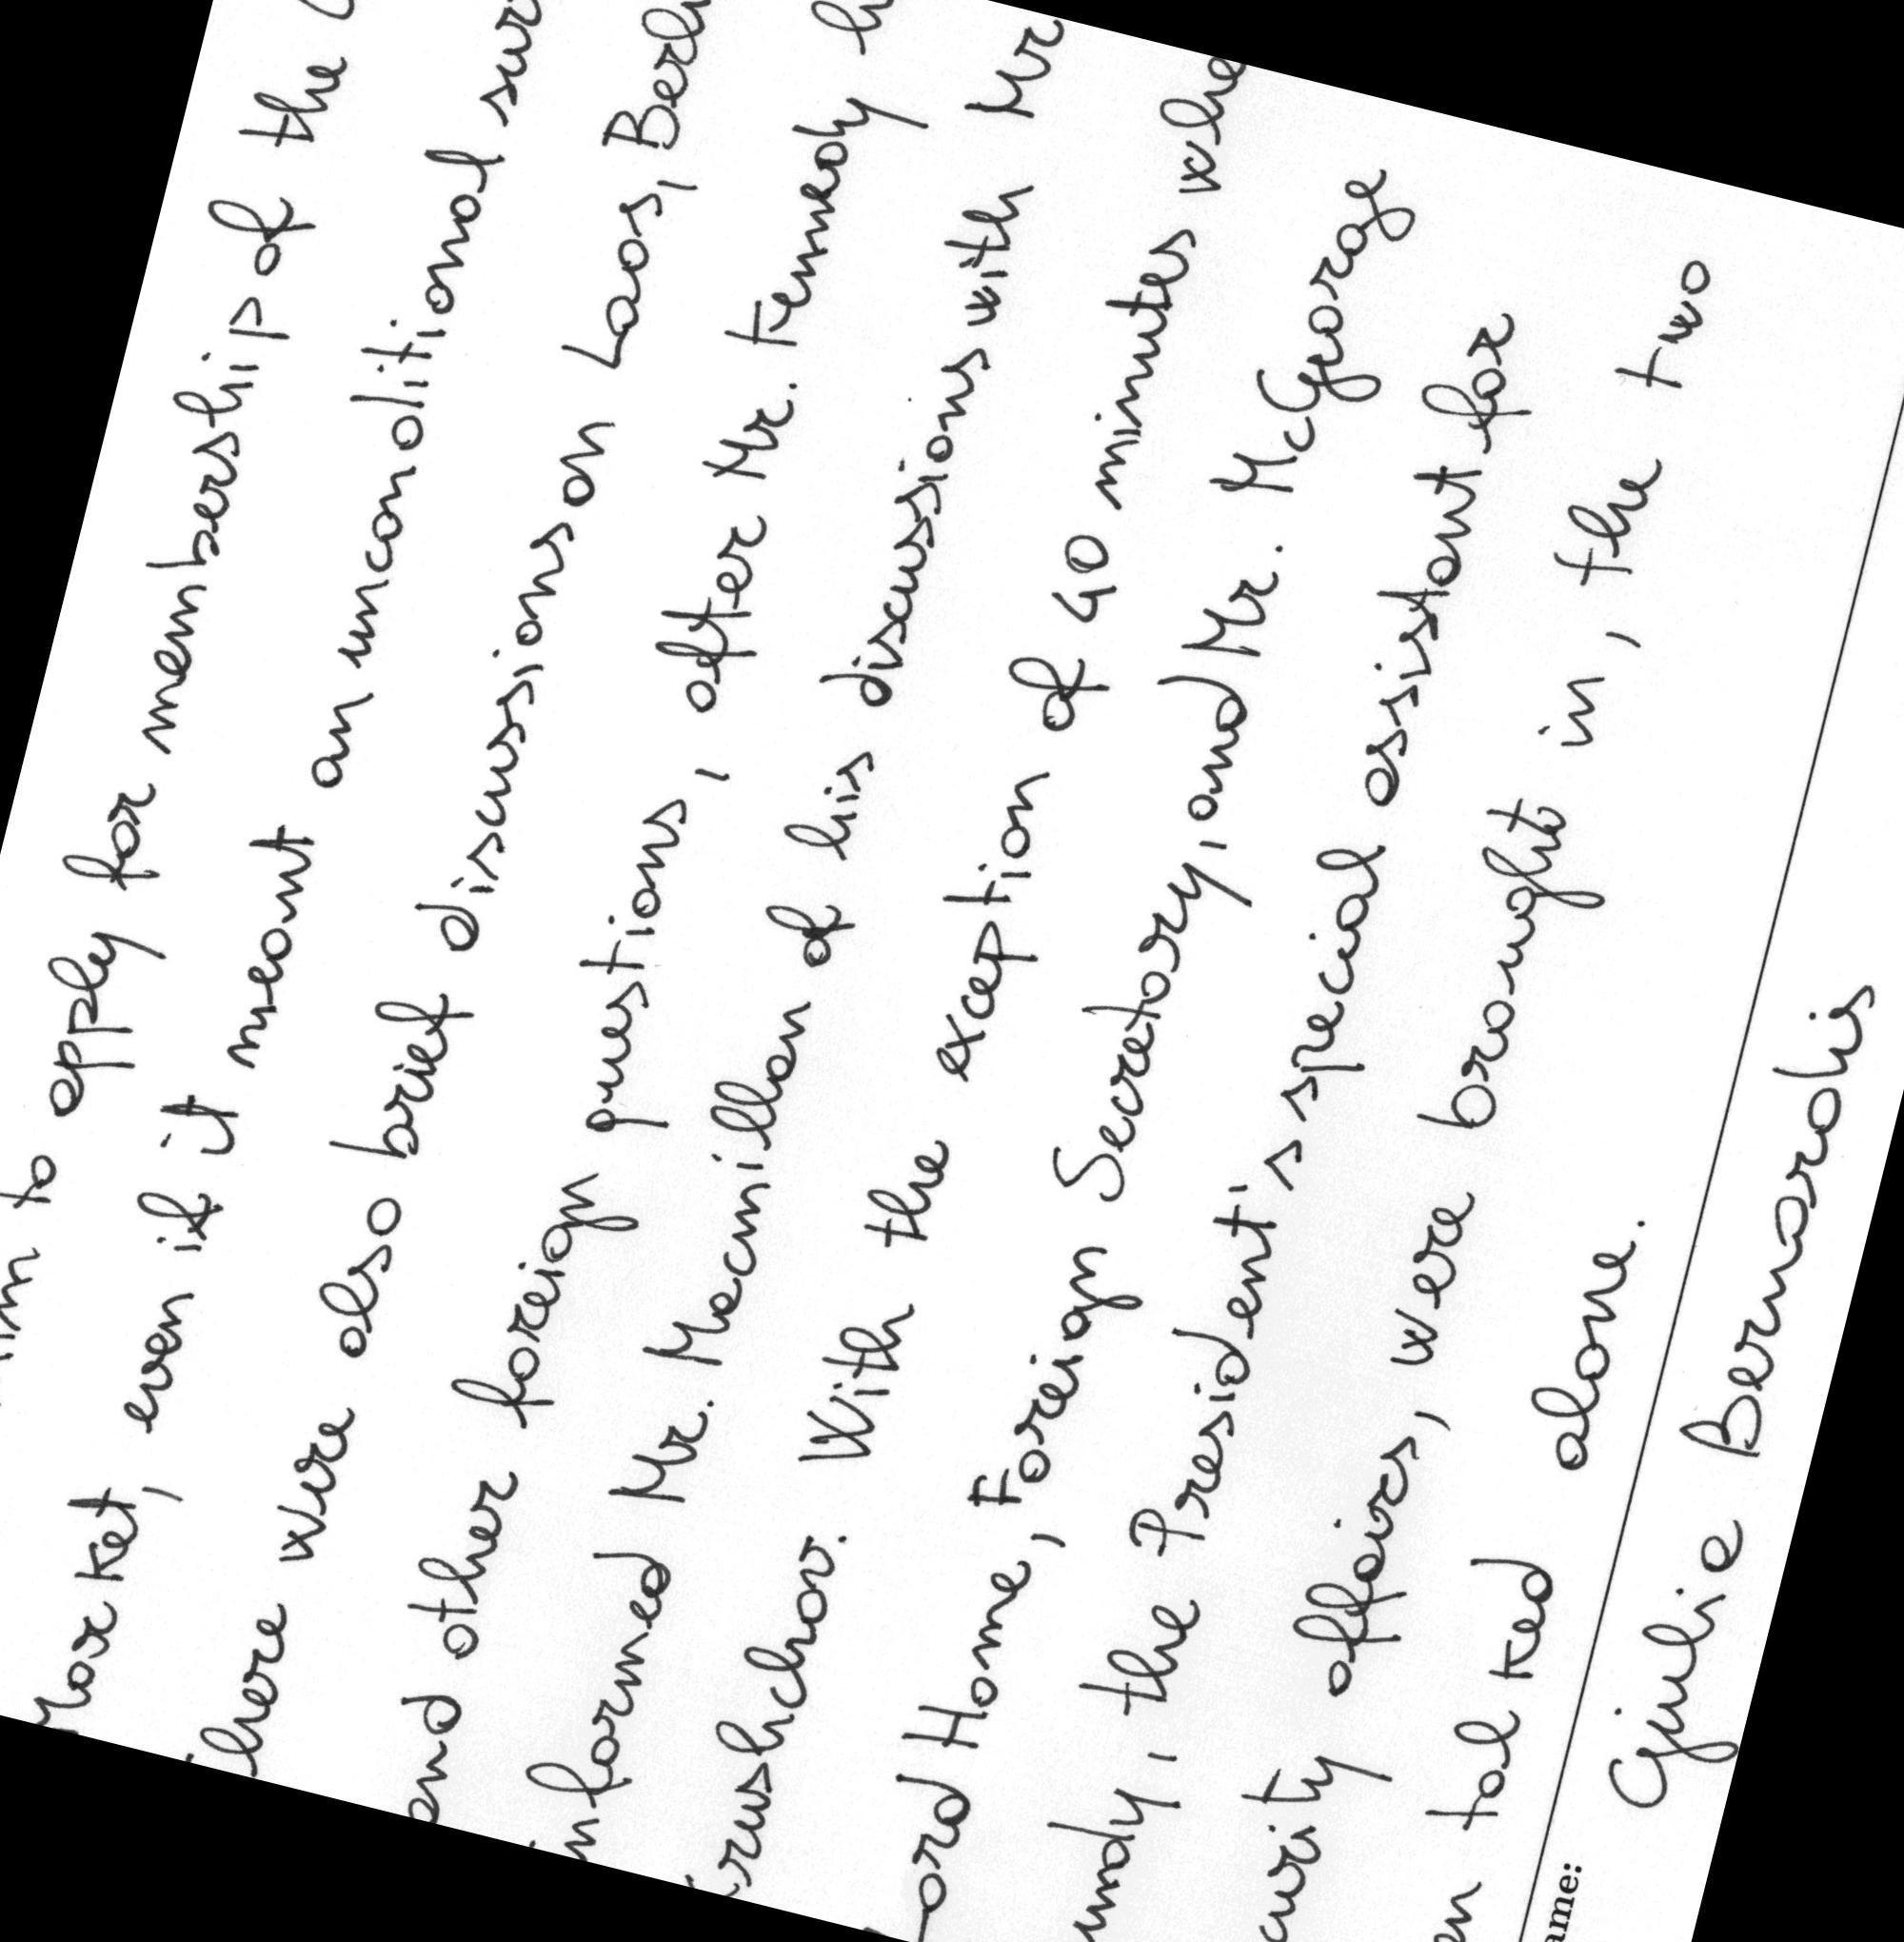 to apply for membership of the
Market, even if it meant an unconditional
were also brief discussions on Laos,
and other foreign questions, after Mr. Kennedy
informed Mr. Macmillan of his discussions with Mr
With the exception of 40 minutes
Home, Foreign Secretary, and Mr. McGeorge
the President's special assistant for
affairs, were brought in, the two
talked alone.
Giulie Bernardis